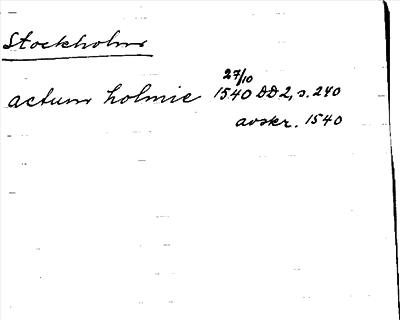 Stockholm
actum holmie 27/10 1540 DD 2, s. 240
avskr. 1540